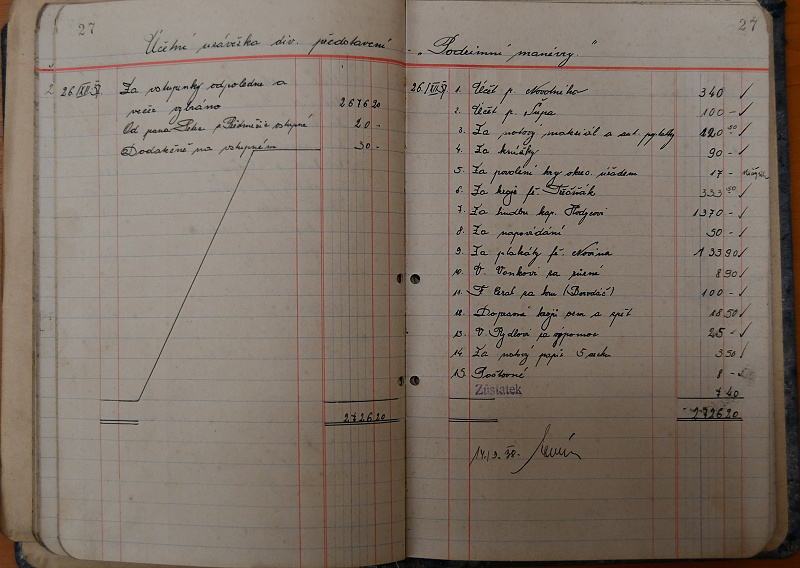 27
Účetní uzávěrka div. představení
26/XII.37 Za vstupenky odpoledne a
večer vybráno 2676 20
Od pana Petra z Předměřic vstupné 20 -
Dodatečně na vstupném 30 -
2726 20
27
- "Podzimní manévry."
26/XII.37 1. Účet p. Novotného 340
2. Účet p. Šupa 100 -
3. Za notový materiál a set. pytlíky 120 50
4. Za knížky 90 -
5. Za povolení hry okres. úřadem 17 -
6. Za kroje fě. 333 50
7. Za hudbu kap. 1370 -
8. Za napovídání 50 -
9. Za plakáty fě. Novina 133 90
10. V. Vonkovi za 8 90
11. F. za (Borodáč) 100 -
12. Dopravné krojů sem a zpět 18 50
13. V. Rydlovi za výpomoc 25 -
14. Za notový papír 5 archů 3 50
15. Poštovné 8 -
Zůstatek 7 40
2726 20
14./3. 38.